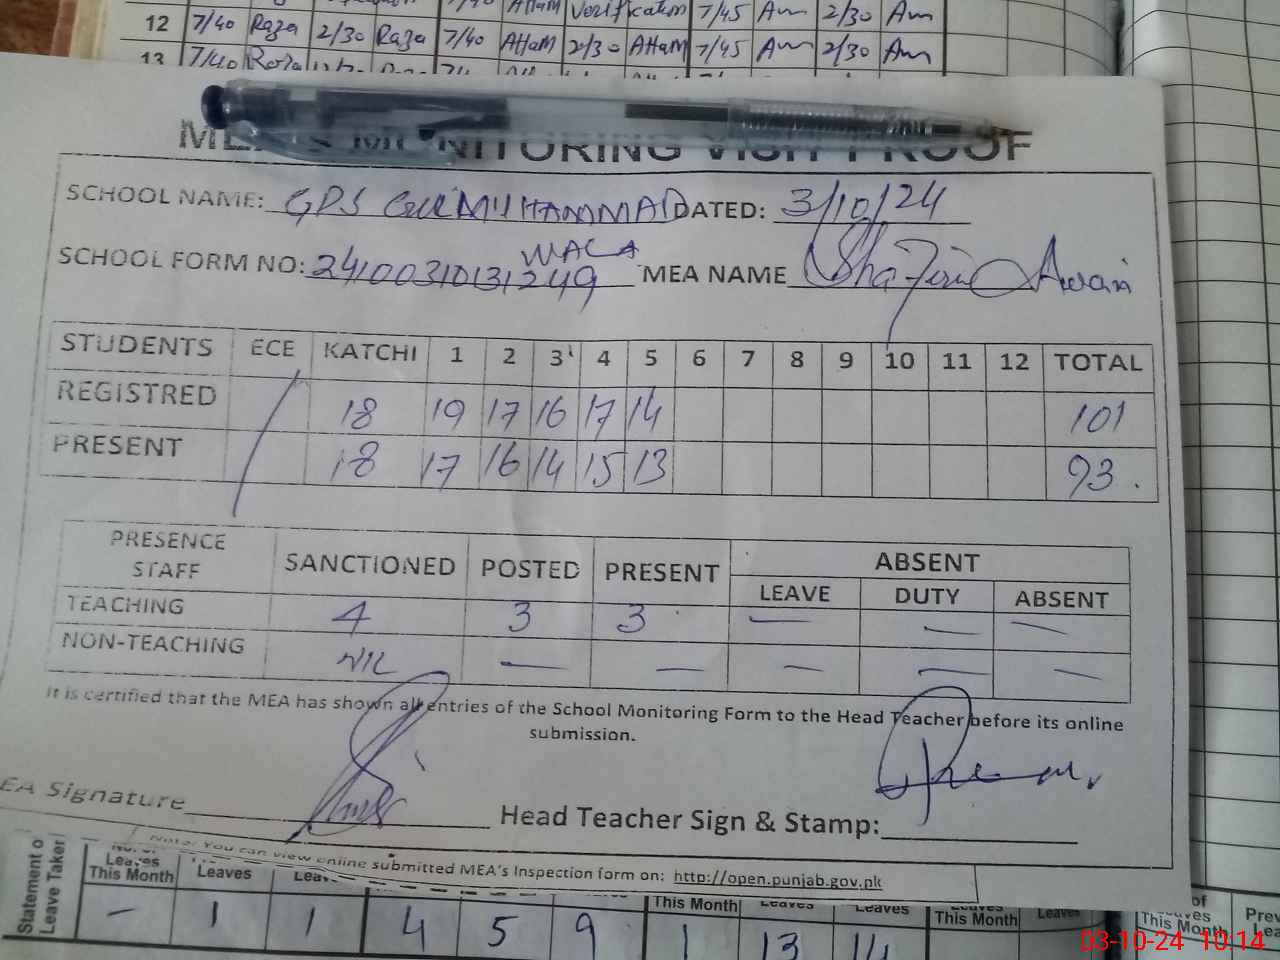 12 7/40 Raza 2/30 Raza 7/40 AHaM 2/30 AHaM 7/45 Am 2/30 Am
13 7/40 Raza
MONITORING VISIT PROOF
SCHOOL NAME: GPS GUL MUHAMMAD DATED: 3/10/24
WALA
SCHOOL FORM NO: 24100310131249 MEA NAME Awan
STUDENTS ECE KATCHI 1 2 3 4 5 6 7 8 9 10 11 12 TOTAL
REGISTRED 18 19 17 16 17 14 101
PRESENT 18 17 16 14 15 13 93
PRESENCE STAFF SANCTIONED POSTED PRESENT ABSENT
LEAVE DUTY ABSENT
TEACHING 4 3 3 — — —
NON-TEACHING NIL — — — — —
It is certified that the MEA has shown all entries of the School Monitoring Form to the Head Teacher before its online
submission.
EA Signature Head Teacher Sign & Stamp:
Note: You can view online submitted MEA's Inspection form on: http://open.punjab.gov.pk
Statement o
Leave Taken
Leaves
This Month Leaves This Month Leaves Leaves This Month Leaves This Month
– 1 1 4 5 9 1 13 14
03-10-24 10:14